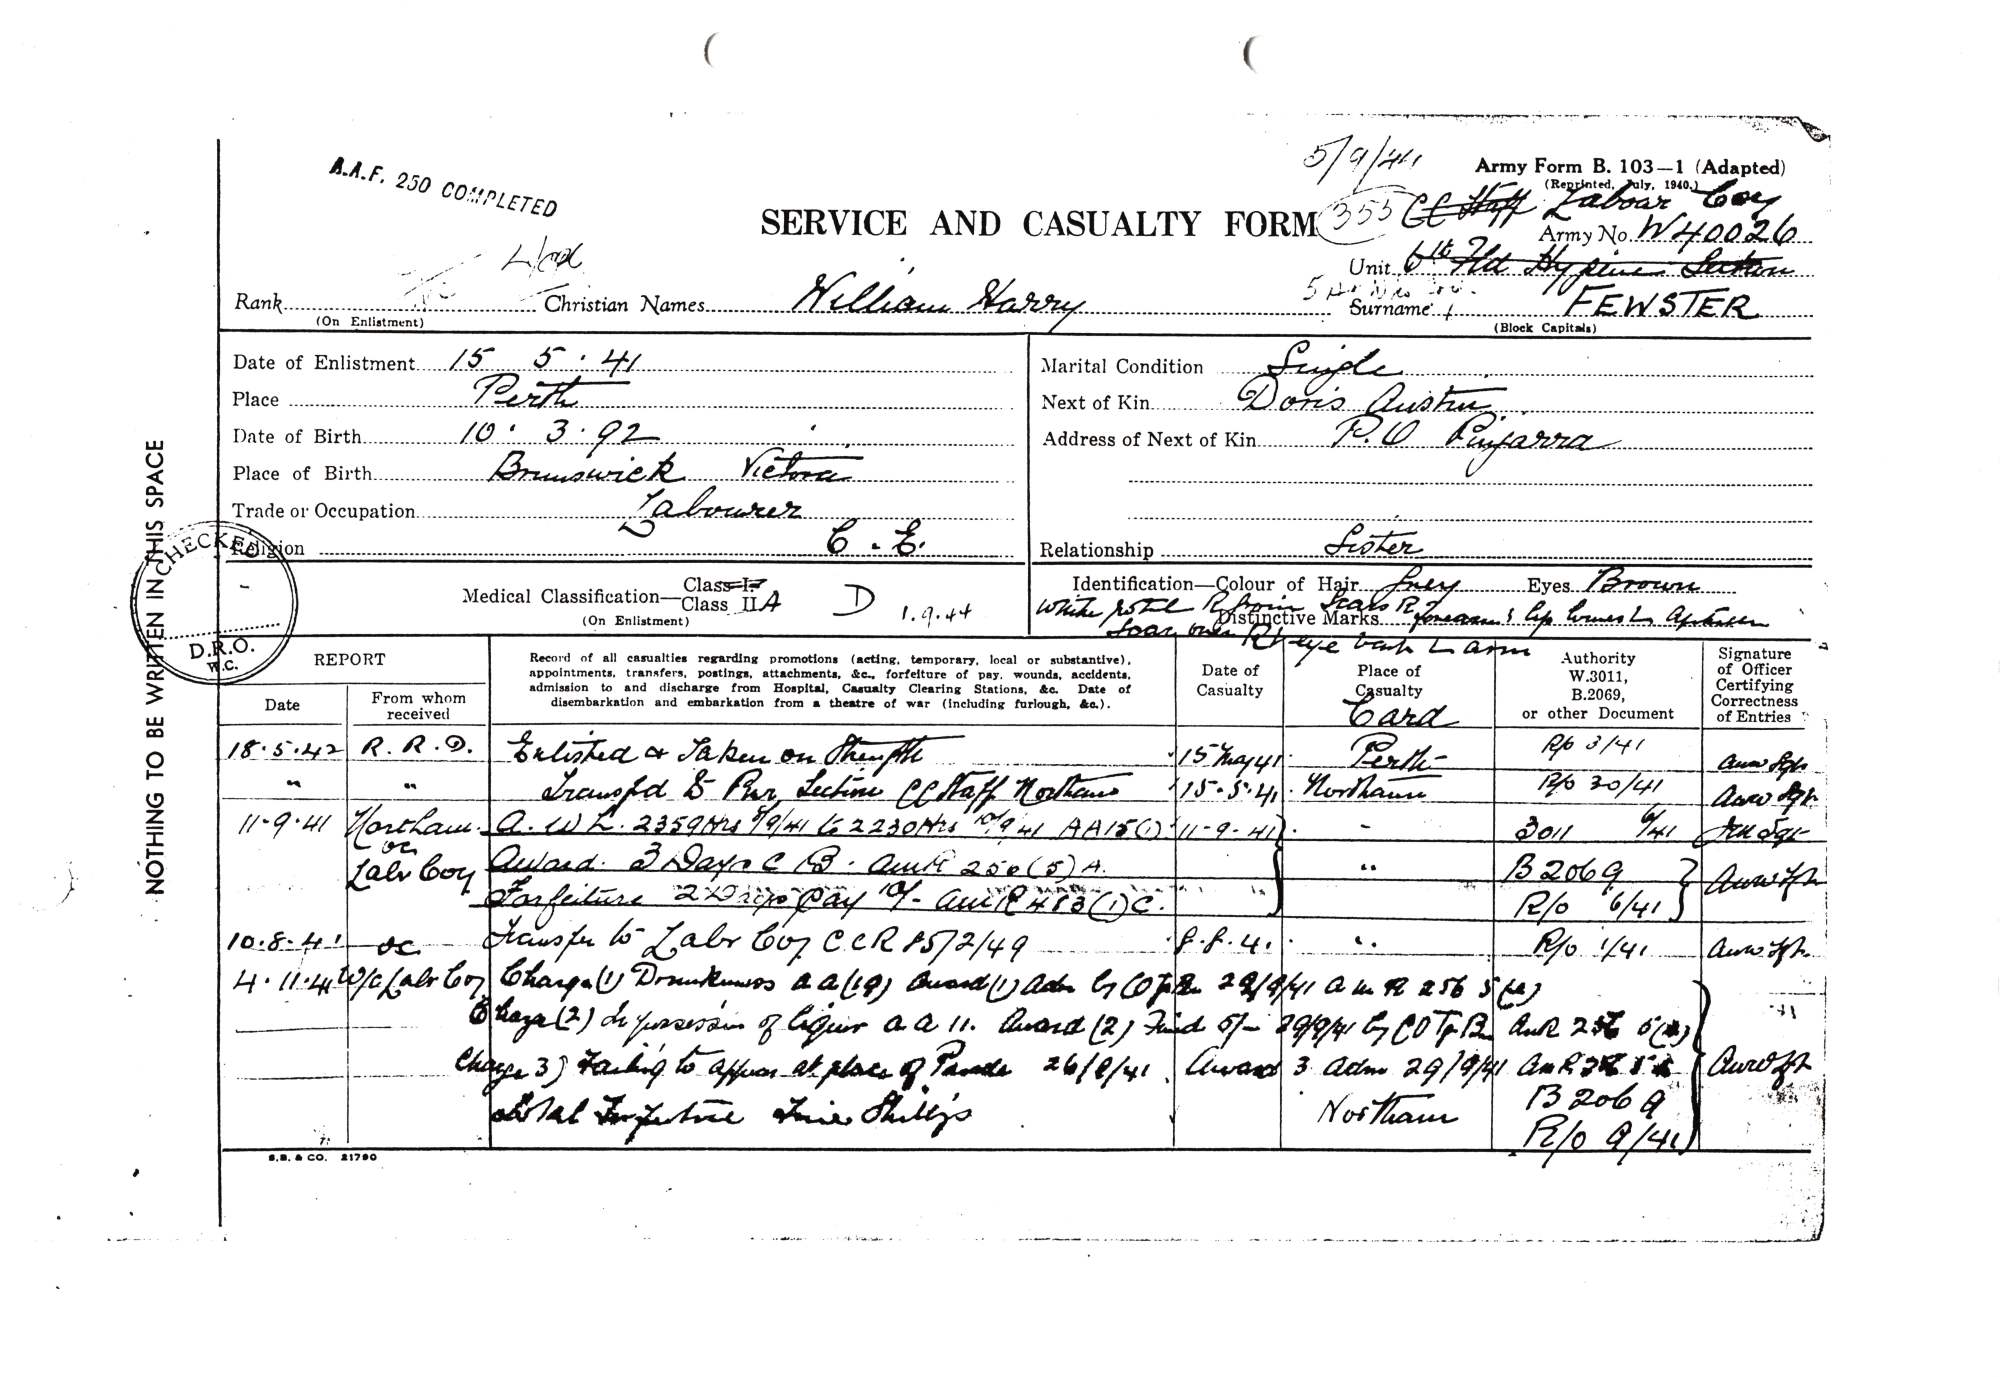 5/9/41
Army Form B. 103—1 (Adapted)
(Reprinted, July, 1940.)
A.A.F. 250 COMPLETED
SERVICE AND CASUALTY FORM
355 CC Staff Labour Coy
Army No. W40026
Unit 6th Fld Hygiene Section
Rank
(On Enlistment)
Christian Names William Harry
Surname FEWSTER
(Block Capitals)
Date of Enlistment 15 5 . 41
Place Perth
Date of Birth 10 . 3 . 92
Place of Birth Brunswick Victoria
Trade or Occupation Labourer
Religion C . E.
Marital Condition Single
Next of Kin Doris Austin
Address of Next of Kin P.O Pinjarra
Relationship Sister
Medical Classification— Class I.
Class II A
(On Enlistment)
D 1.9.44
Identification—Colour of Hair Grey Eyes Brown
White R Scars R
Distinctive Marks forearm
Scar over Rt eye L arm
NOTHING TO BE WRITTEN IN THIS SPACE
CHECKED
D.R.O.
W.C.
REPORT
Date
From whom received
Record of all casualties regarding promotions (acting, temporary, local or substantive),
appointments, transfers, postings, attachments, &c., forfeiture of pay, wounds, accidents,
admission to and discharge from Hospital, Casualty Clearing Stations, &c. Date of
disembarkation and embarkation from a theatre of war (including furlough, &c.).
Date of Casualty
Place of Casualty
Card
Authority
W.3011,
B.2069,
or other Document
Signature of Officer Certifying Correctness of Entries
18.5.42 R.R.D. Enlisted & Taken on Strength 15 May 41 Perth R/o 3/41
" " Transfd to Section CC Staff Northam 15.5.41 Northam R/o 30/41
11-9-41 Northam A.W.L. 2359 Hrs 9/9/41 to 2230 Hrs 10/9/41 AA15(1) 11-9-41 - 3011 6/41
OC Labr Coy Award. 3 Days C B. AMR 256(5)A. " B2069
Forfeiture 2 Days Pay AMR 483(1)C. R/o 6/41
10.8.41 OC Transfer to Labr Coy CCR 85/2/49 8.8.41 " R/o 1/41
4.11.41 O/C Labr Coy Charge (1) Drunkenness AA(19) Award (1) Adm by CO 29/9/41 AMR 256 5(a)
Charge (2) In possession of liquor AA 11. Award (2) Fined 5/- 29/9/41 by CO AMR 256 5(a)
Charge 3) Failing to appear at place of Parade 26/9/41 Award 3 Adm 29/9/41 AMR
Total Forfeiture Five Shillings Northam B2069
R/o 9/41
S.B. & CO. 21790